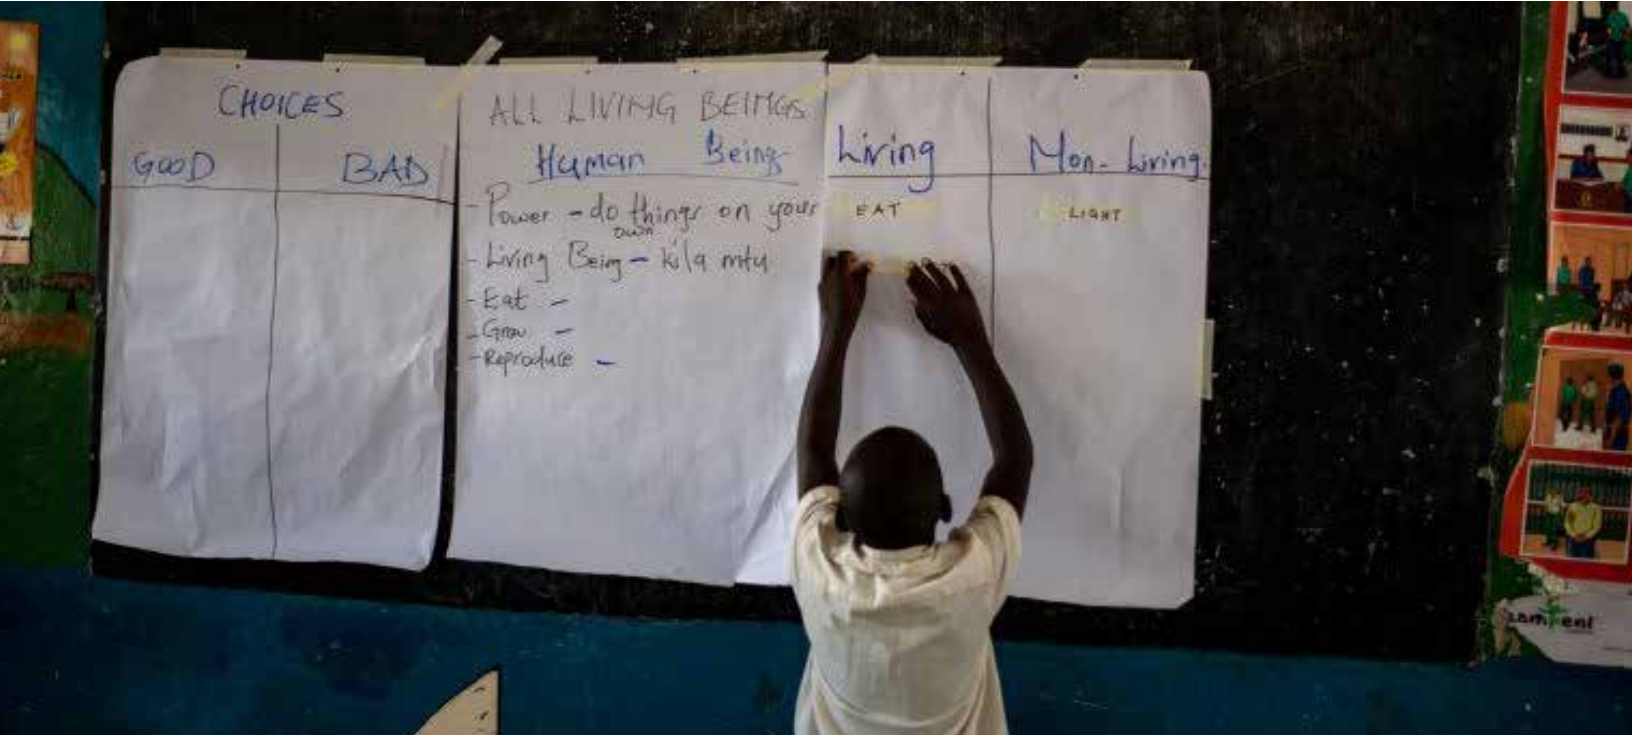 CHOICES
GOOD BAD
ALL LIVING BEINGS
Human Beings
- Power - do things on your
own
- Living Being - kila mtu
- Eat -
- Grow -
- Reproduce -
Living Non-Living
EAT LIGHT